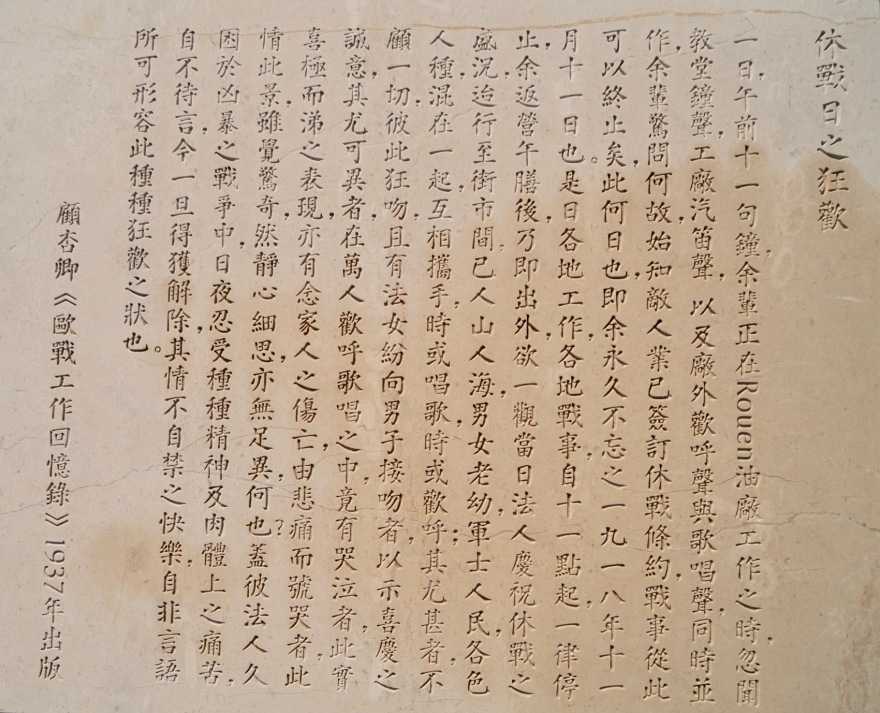 休戰日之狂歡
一日，午前十一句鐘，余輩正在Rouen油廠工作之時，忽聞
教堂鐘聲，工廠汽笛聲，以及廠外歡呼聲與歌唱聲，同時並
作，余輩驚問何故，始知敵人業已簽訂休戰條約，戰事從此
可以終止矣，此何日也，即余永久不忘之一九一八年十一
月十一日也。是日各地工作，各地戰事，自十一點起，一律停
止，余返營午膳後，乃即出外，欲一觀當日法人慶祝休戰之
盛況，迨行至街市間，已人山人海，男女老幼，軍士人民，各色
人種，混在一起，互相攜手，時或唱歌，時或歡呼；其尤甚者，不
顧一切，彼此狂吻，且有法女紛向男子接吻者，以示喜慶之
誠意，其尤可異者，在萬人歡呼歌唱之中，竟有哭泣者，此實
喜極而涕之表現，亦有念家人之傷亡，由悲痛而號哭者，此
情此景，雖覺驚奇，然靜心細思，亦無足異，何也？蓋彼法人久
困於凶暴之戰爭中，日夜忍受種種精神及肉體上之痛苦，
自不待言，今一旦得獲解除，其情不自禁之快樂，自非言語
所可形容此種種狂歡之狀也。
顧杏卿《歐戰工作回憶錄》1937年出版